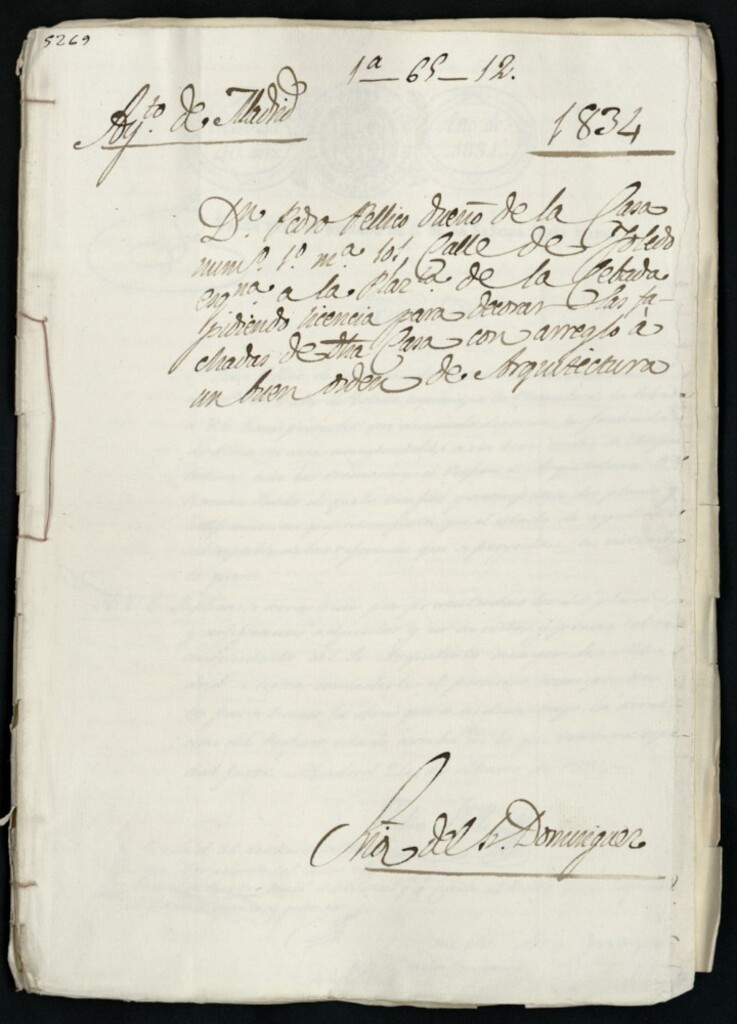 5269
1ª 65-12.
Ayto. de Madrid
1834
Dn. Pedro Pellico dueño de la Casa
numo. 1º mª 101 Calle de Toledo
esqna. a la Plazª de la Cebada
pidiendo licencia para decorar las fa-
chadas de dha Casa con arreglo à
un buen orden de Arquitectura
Sria del Sr. Dominguez